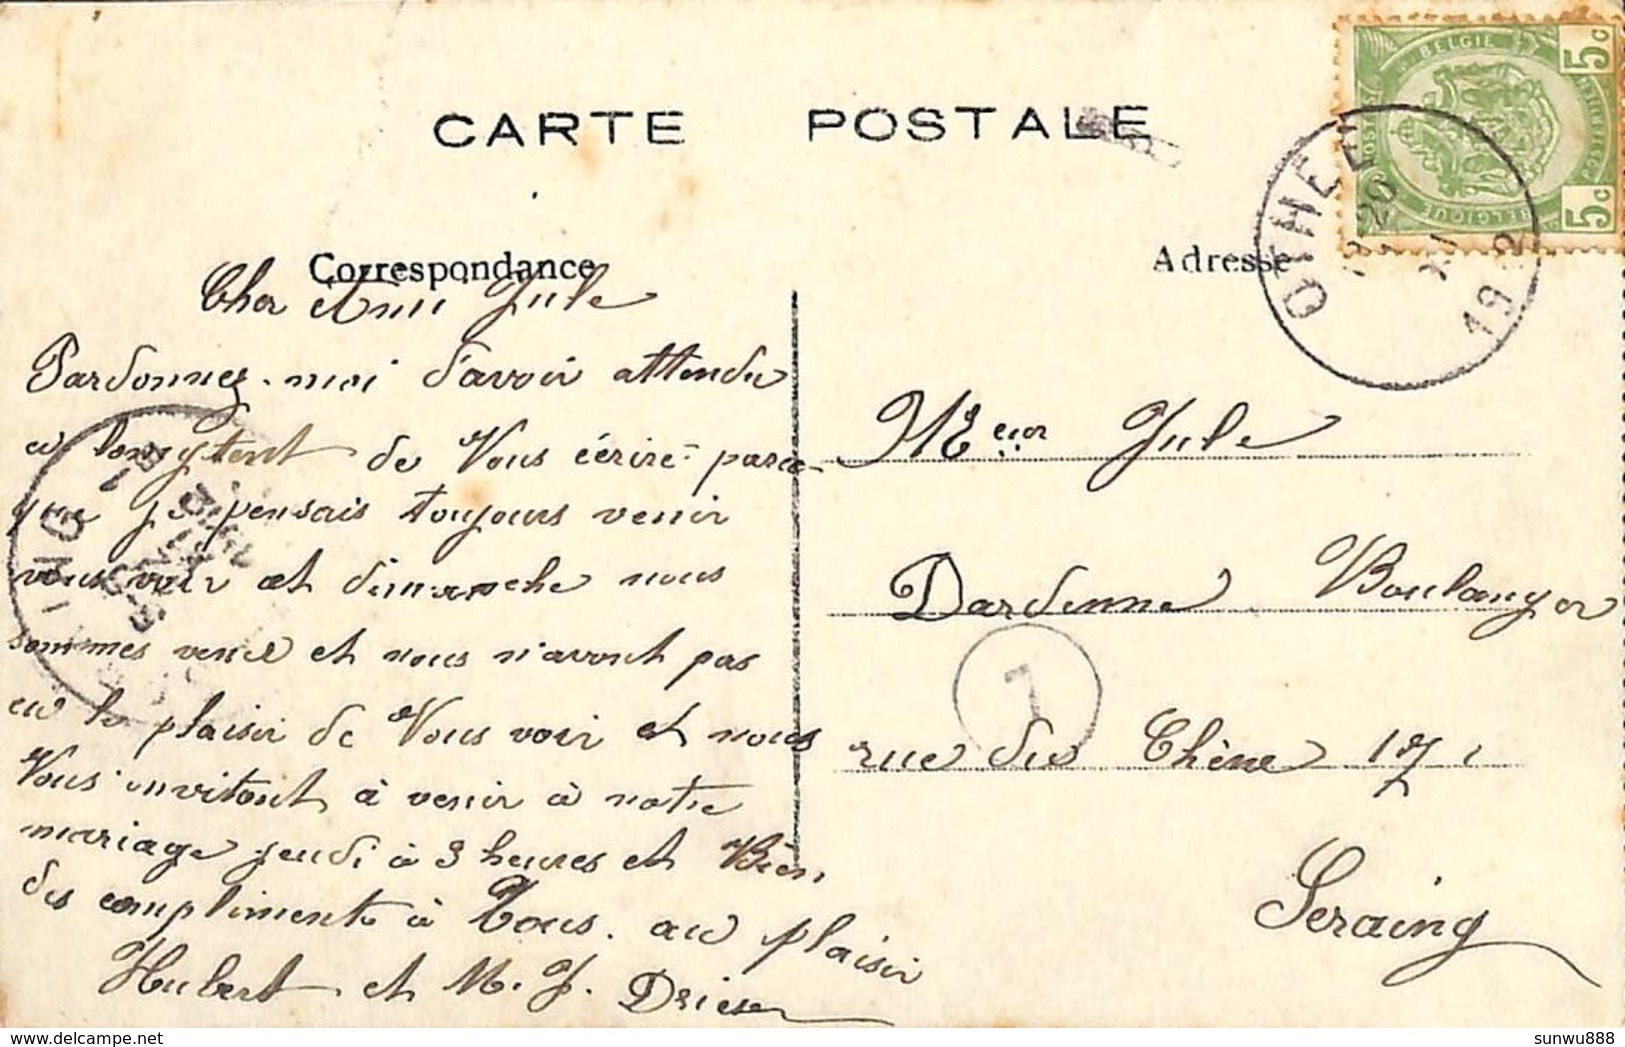 CARTE POSTALE
Correspondance
Cher Ami Jule
Pardonnez-moi d'avoir attendu
longtent de Vous écrire parce
que je pensais toujours venir
vous voir et dimanche nous
sommes venu et nous n'avont pas
eu le plaisir de Vous voir et nous
Vous invitont à venir à notre
mariage jeudi à 3 heures et Bien
des compliments à Tous. au plaisir
Hubert et M. J. Driesen
Adresse
Jule
Dardenne Boulanger
rue des Chêne 171
Seraing
BELGIE
BELGIQUE
5c
5c
OTHEE
20
XI
1912
1
sunwu888